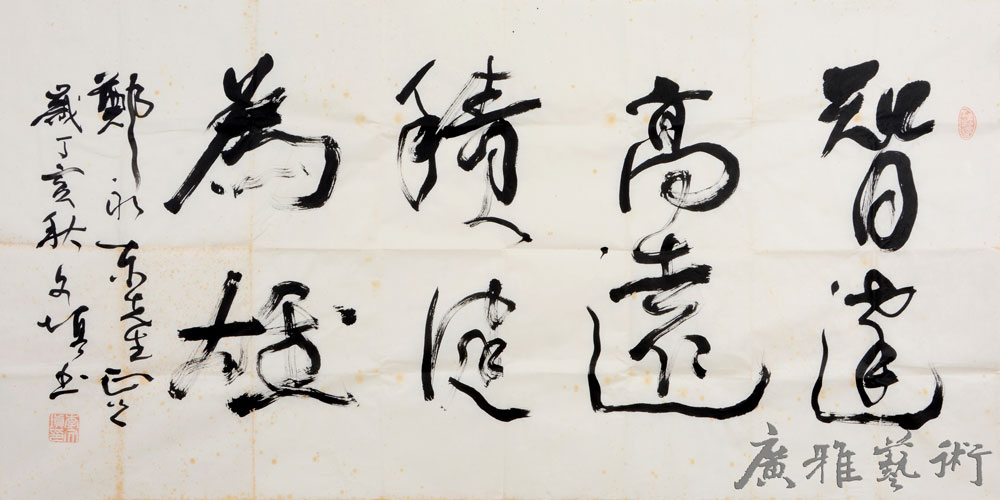 智達
高遠
積健
為雄
鄭永东先生正之
歲丁亥秋文塡书
廣雅藝術